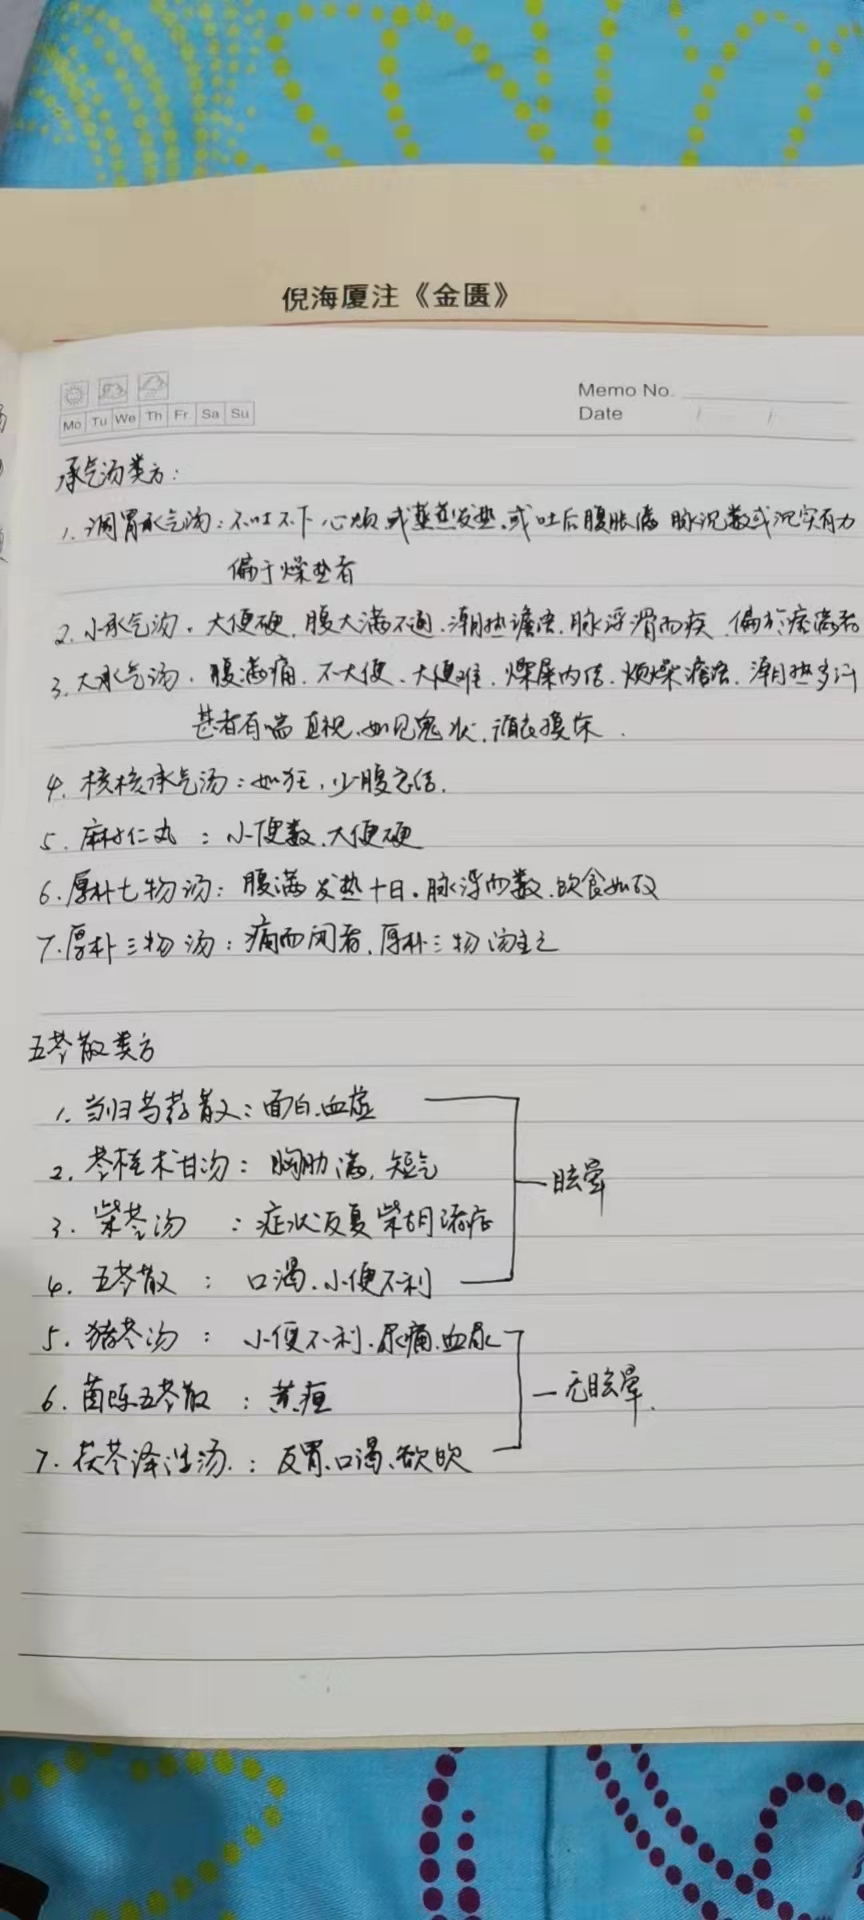 倪海厦注《金匮》
Memo No.
Mo Tu We Th Fr Sa Su
Date / /
承气汤类方:
1. 调胃承气汤:不吐不下 心烦 或蒸蒸发热.或吐后腹胀满 脉沉数或沉实有力
偏于燥热者
2. 小承气汤.大便硬.腹大满不通.潮热谵语.脉浮滑而疾 偏於痞满者
3. 大承气汤.腹满痛.不大便.大便难.燥屎内结.烦燥谵语.潮热多汗
甚者有喘 直视.如见鬼状.循衣摸床.
4. 核核承气汤:如狂,少腹急结.
5. 麻子仁丸:小便数.大便硬
6. 厚朴七物汤:腹满 发热十日.脉浮而数.饮食如故
7. 厚朴三物汤:痛而闭者,厚朴三物汤主之
五苓散类方
1. 当归芍药散:面白.血虚
2. 苓桂术甘汤:胸胁满,短气
—眩晕
3. 柴苓汤:症状反复 柴胡诸症
4. 五苓散:口渴.小便不利
5. 猪苓汤:小便不利.尿痛.血尿
6. 茵陈五苓散:黄疸
—无眩晕.
7. 茯苓泽泻汤.:反胃.口渴.欲饮